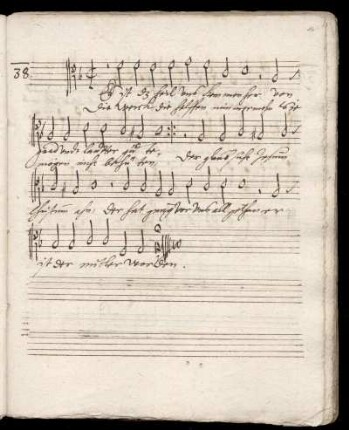 38
Es ist dz heil uns kommen her von
Die werck die helffen nimmermehr sie
gnad und lautter güte.
mögen nicht behüten. Der glaub sihet Jesum
Christum an, der hat gnug vor uns all gethan er
ist der mitler worden.